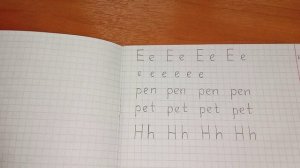 Ee Ee Ee Ee
e e e e e e
pen pen pen pen
pet pet pet pet
Hh Hh Hh Hh